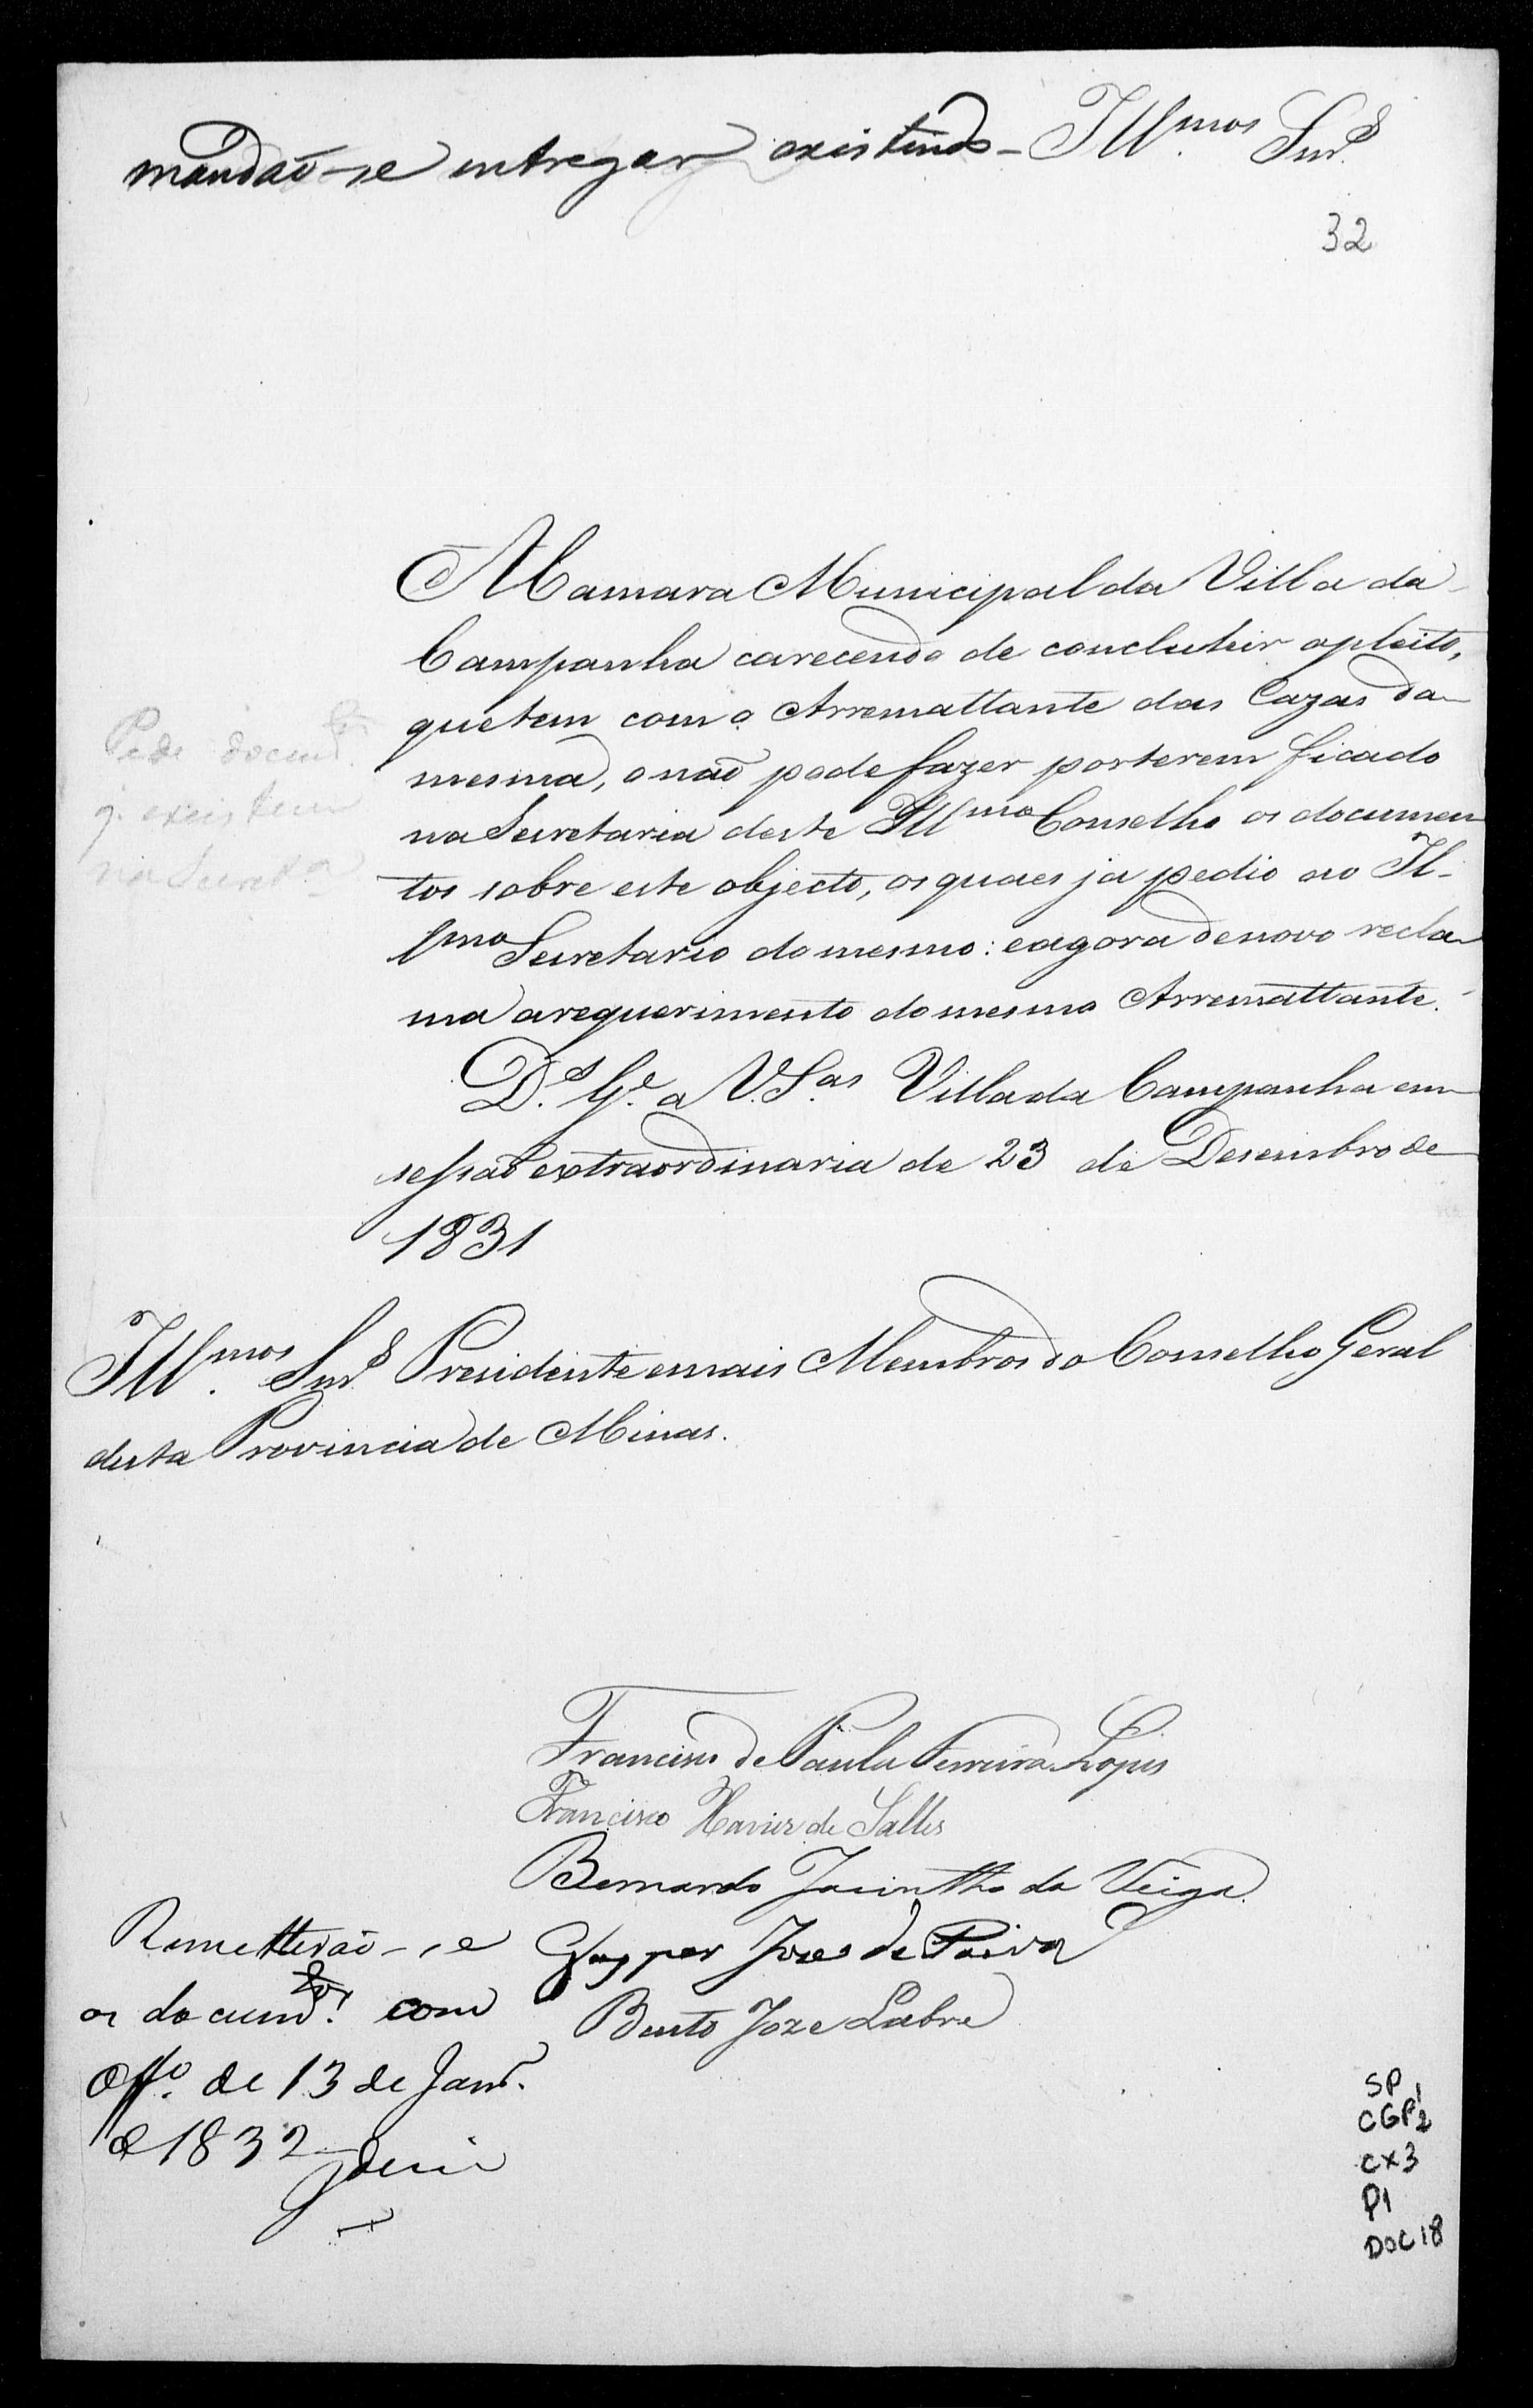 mandaõ-se entregar existindo - Illmos Snrs
32
A Camara Municipal da Villa da
Campanha carecendo de concluhir o pleito,
que tem com o Arremattante das Cazas da
mesma, o naõ pode fazer por terem ficado
na Secretaria deste Illmo Conselho os documen
tos sobre este objecto, os quaes ja pedio ao Il-
lmo Secretario do mesmo: e agora de novo recla
ma a requerimento do mesmo Arremattante.
Pede docum.tos
q. existem
na Secret.a
D.s G.e a V.S.as Villa da Campanha em
sessaõ extraordinaria de 23 de Desembro de
1831
Illmos Snrs Presidente e mais Membros do Conselho Geral
desta Provincia de Minas.
Francisco de Paula Ferreira Lopes
Francisco Xavier de Salles
Bernardo Jacintho da Veiga
Gaspar Joze de Paiva
Bento Joze Labre
Remetteraõ-se
os docum.tos com
Off.o de 13 de Janr.o
de 1832
SP
CGP1 2
CX3
P1
DOC 18